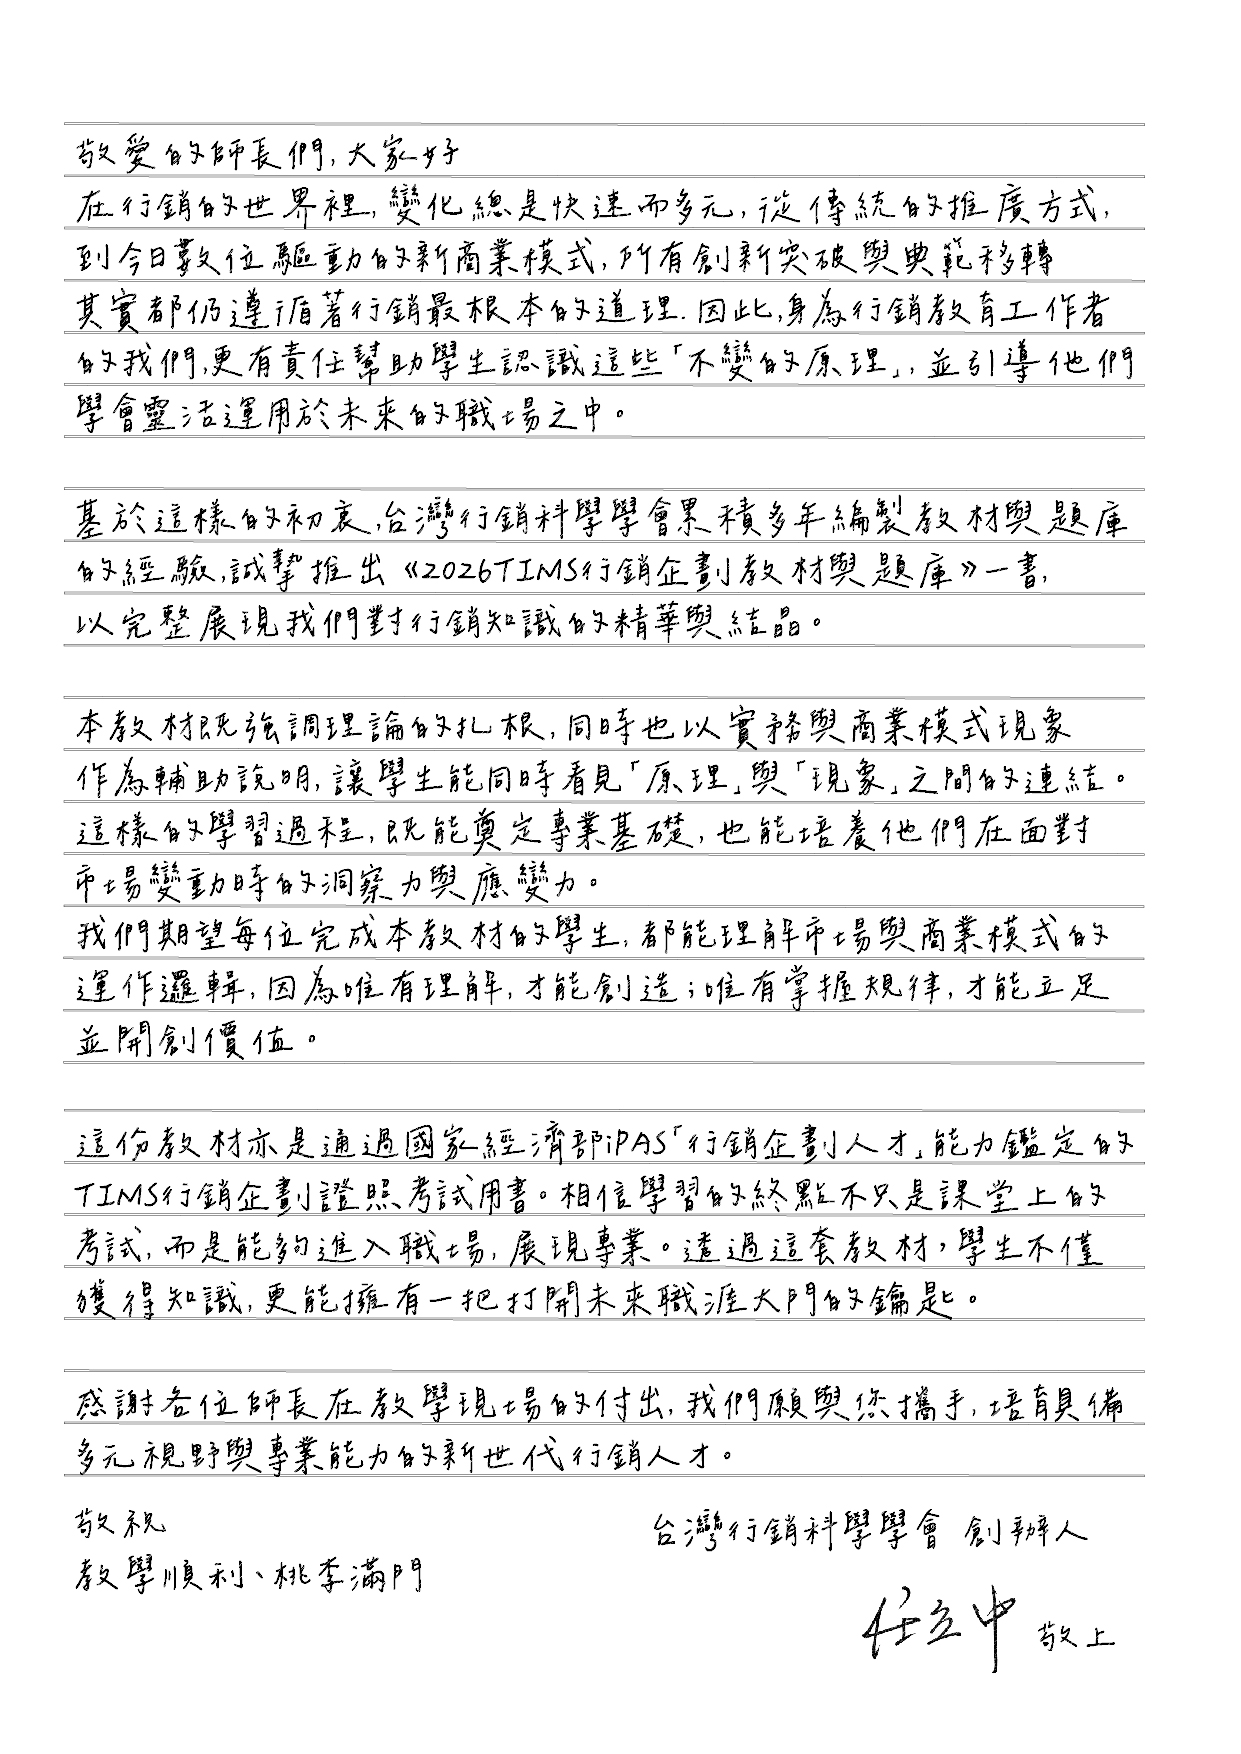 敬愛的師長們,大家好
在行銷的世界裡,變化總是快速而多元,從傳統的推廣方式,
到今日數位驅動的新商業模式,所有創新突破與典範移轉
其實都仍遵循著行銷最根本的道理.因此,身為行銷教育工作者
的我們,更有責任幫助學生認識這些「不變的原理」,並引導他們
學會靈活運用於未來的職場之中。
基於這樣的初衷,台灣行銷科學學會累積多年編製教材與題庫
的經驗,誠摯推出《2026TIMS行銷企劃教材與題庫》一書,
以完整展現我們對行銷知識的精華與結晶。
本教材既強調理論的扎根,同時也以實務與商業模式現象
作為輔助說明,讓學生能同時看見「原理」與「現象」之間的連結。
這樣的學習過程,既能奠定專業基礎,也能培養他們在面對
市場變動時的洞察力與應變力。
我們期望每位完成本教材的學生,都能理解市場與商業模式的
運作邏輯,因為唯有理解,才能創造;唯有掌握規律,才能立足
並開創價值。
這份教材亦是通過國家經濟部iPAS「行銷企劃人才」能力鑑定的
TIMS行銷企劃證照考試用書。相信學習的終點不只是課堂上的
考試,而是能夠進入職場,展現專業。透過這套教材,學生不僅
獲得知識,更能擁有一把打開未來職涯大門的鑰匙。
感謝各位師長在教學現場的付出,我們願與您攜手,培育具備
多元視野與專業能力的新世代行銷人才。
敬祝
教學順利、桃李滿門
台灣行銷科學學會 創辦人
任立中 敬上